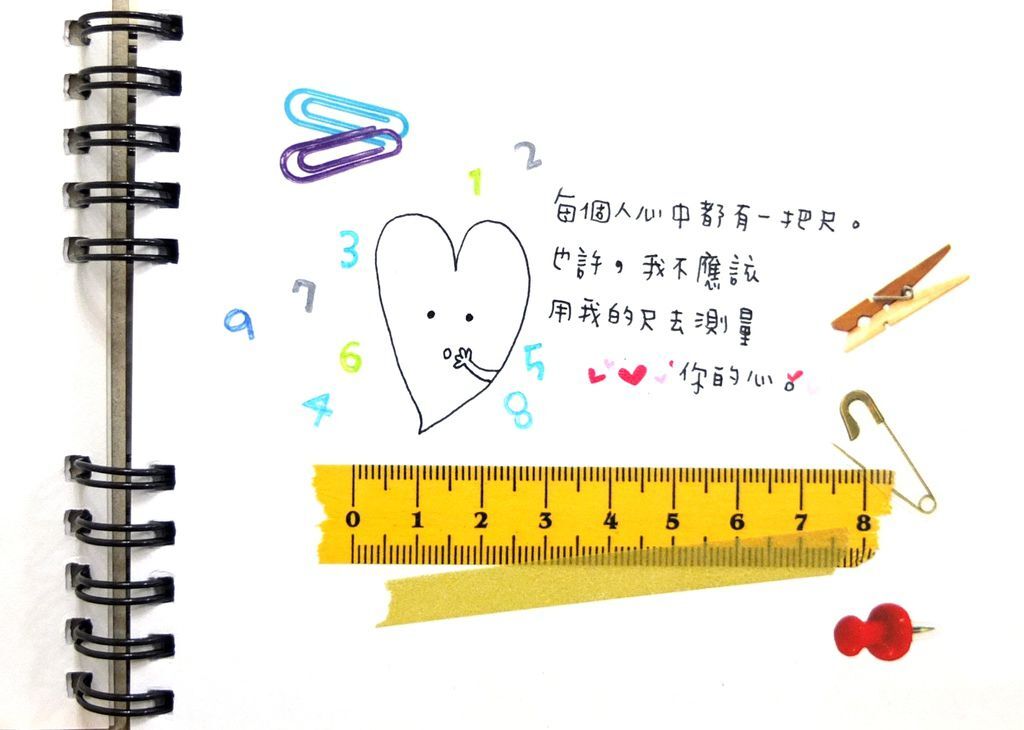 1 2
3
7
9
6
4
5
8
每個人心中都有一把尺。
也許，我不應該
用我的尺去測量
你的心。
0 1 2 3 4 5 6 7 8